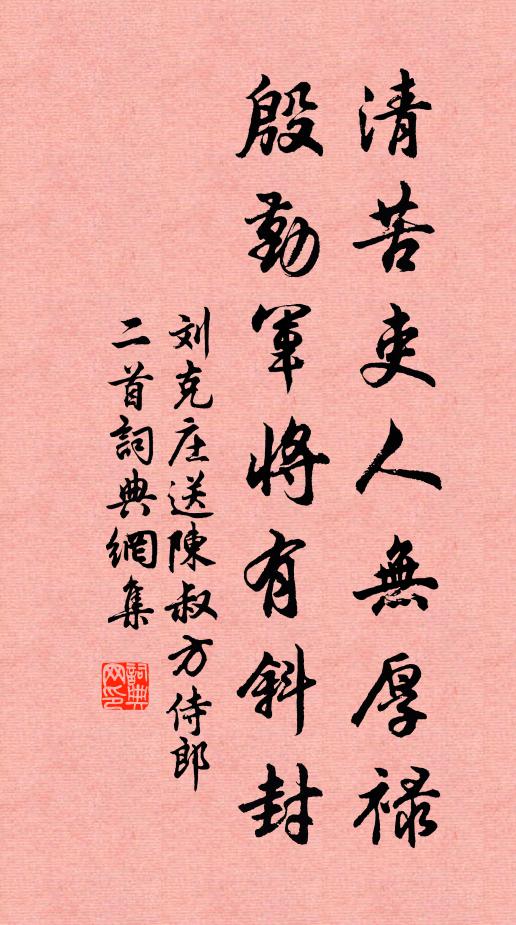 清苦吏人無厚祿
殷勤軍將有斜封
刘克庄送陳叔方侍郎
二首詞典網集
詞典网印